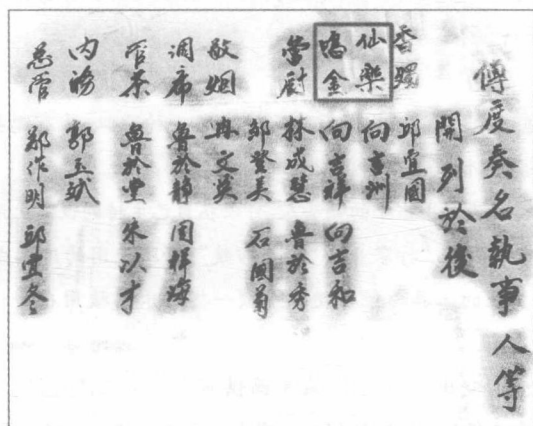 傳度奏名執事人等
開列於後
香燭 邱宜國
仙樂 向吉洲
鳴金 向吉祥 向吉和
掌廚 林成慧 魯於秀
鄒發美 石國菊
散烟 冉文英
調席 魯於靜 國祥海
管茶 魯於堂 朱以才
內務 郭玉斌
總管 鄒作明 邱宜冬